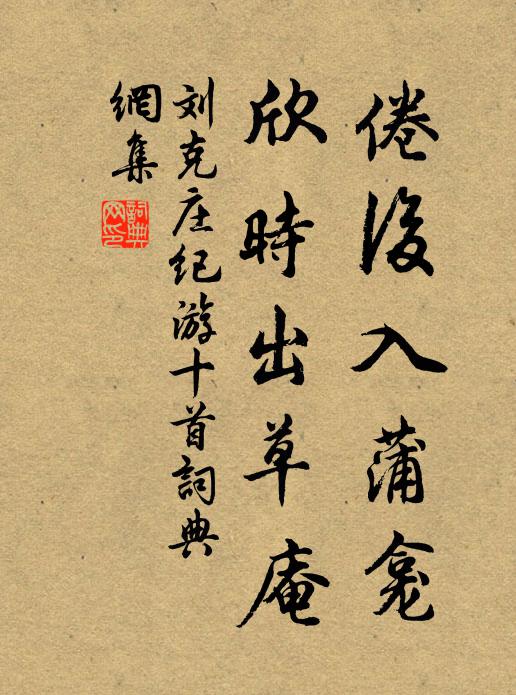 倦后入蒲龛
欣時出草庵
刘克庄纪游十首詞典
網集
詞典网印